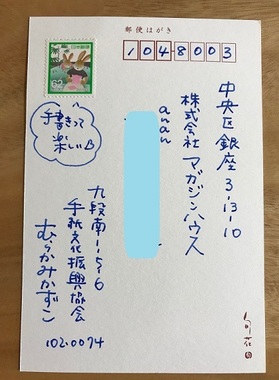 郵便はがき
1048003
日本郵便
62
中央区銀座3-13-10
株式会社マガジンハウス
anan
手書きって
楽しい
九段南1-5-6
手紙文化振興協会
むらかみかずこ
102-0074
旬花